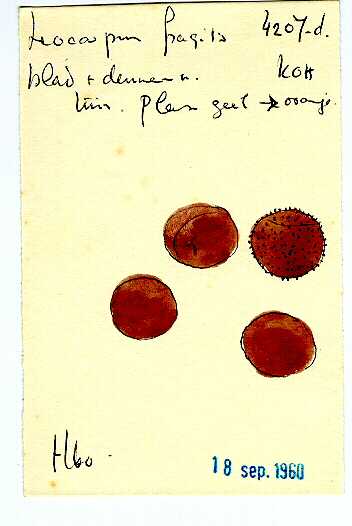 Leocarpus fragilis 4207-d.
blad + dennen n. KOH
tuin. Plasm geel → oranje
Hbo
18 sep. 1960